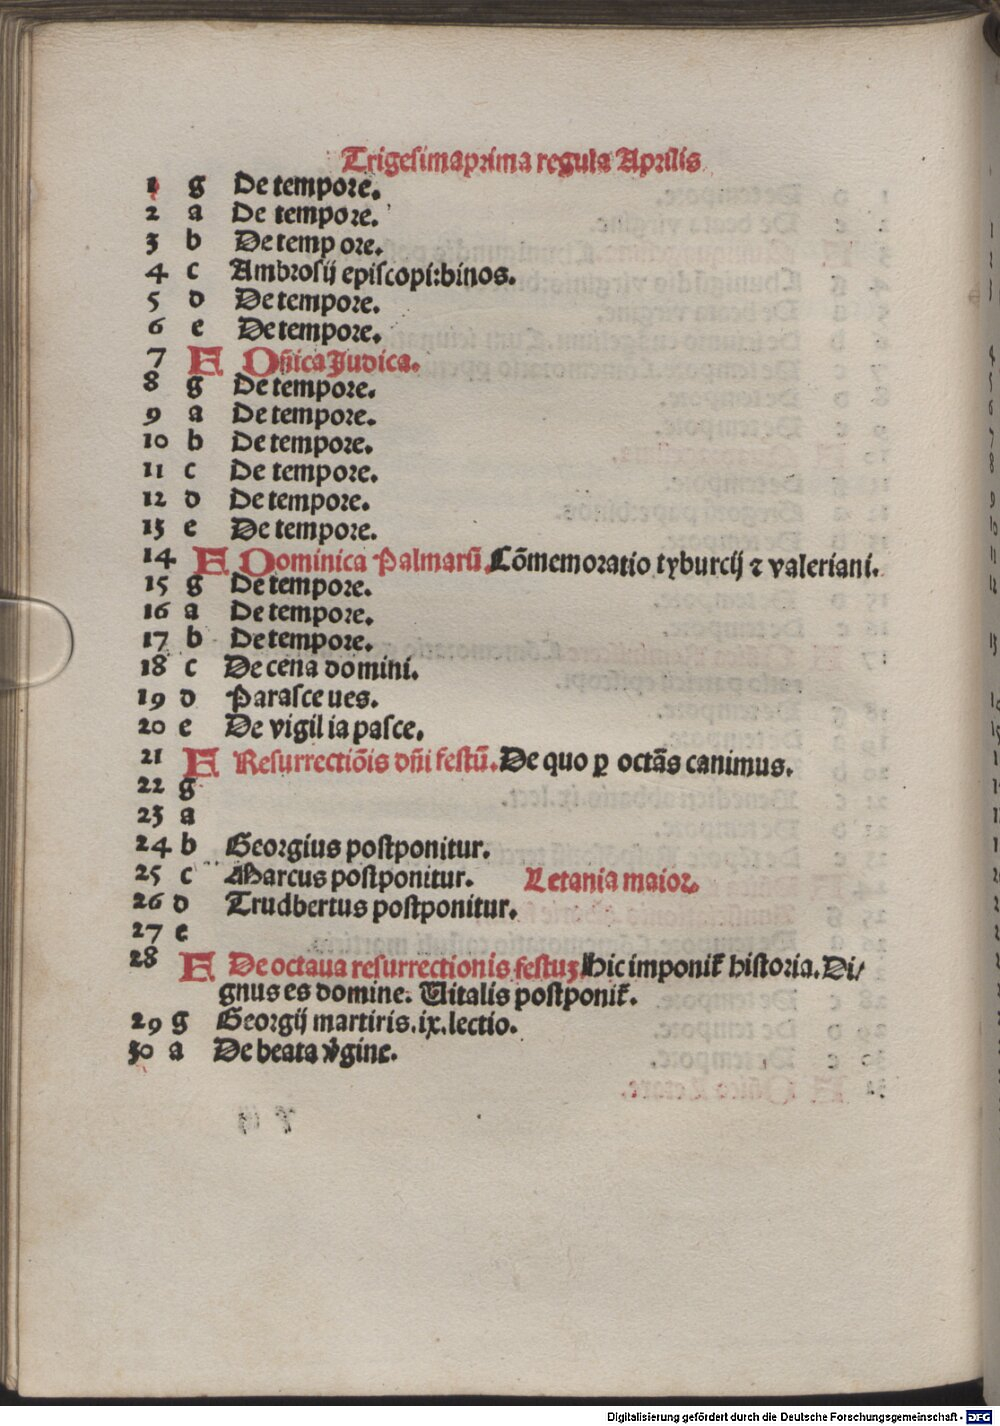 Trigesimaprima regula Aprilis
1 g De tempore.
2 a De tempore.
3 b De temp ore.
4 c Ambrosij episcopi:binos.
5 d De tempore.
6 e De tempore.
7 F Dñica Judica.
8 g De tempore.
9 a De tempore.
10 b De tempore.
11 c De tempore.
12 d De tempore.
13 e De tempore.
14 F Dominica Palmarũ Cõmemoratio tyburcij ⁊ valeriani.
15 g De tempore.
16 a De tempore.
17 b De tempore.
18 c De cena domini.
19 d Parasce ues.
20 e De vigil ia pasce.
21 F Resurrectiõis dñi festũ. De quo ꝑ octãs canimus.
22 g
23 a
24 b Georgius postponitur.
25 c Marcus postponitur. Letania maior.
26 d Trudbertus postponitur.
27 e
28 F De octaua resurrectionis festuꝫ Hic imponit̃ historia. Di/
gnus es domine. Uitalis postponit̃.
29 g Georgij martiris.ix.lectio.
30 a De beata v̾gine.
Digitalisierung gefördert durch die Deutsche Forschungsgemeinschaft - DFG